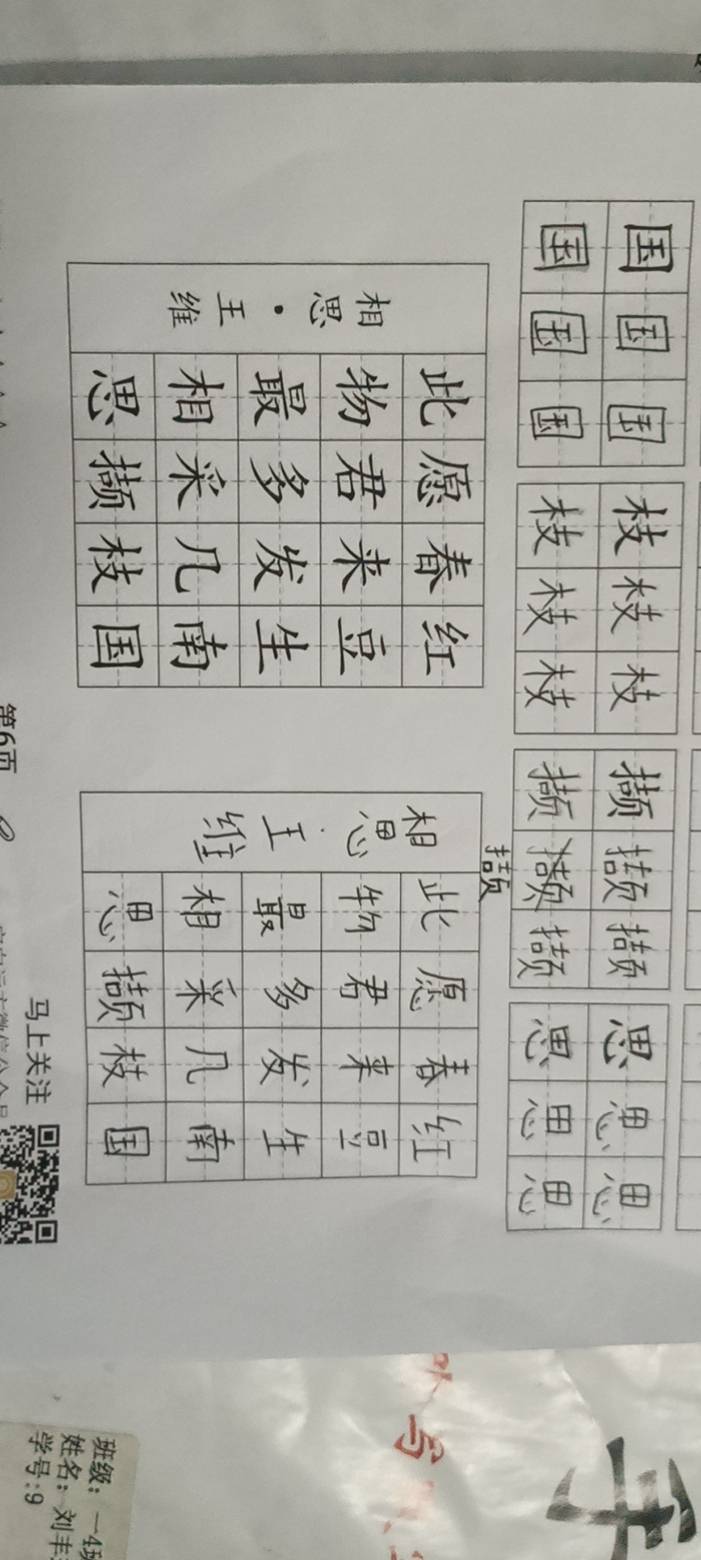 国 国 国 枝 枝 枝 撷 撷 撷 思 思 思
国 国 国 枝 枝 枝 撷 撷 撷 思 思 思
撷
红豆生南国
春来发几枝
愿君多采撷
此物最相思
相思·王维
红豆生南国
春来发几枝
愿君多采撷
此物最相思
相思·王维
马上关注
第6页
手
写
班级：一4班
姓名：刘丰
学号:9